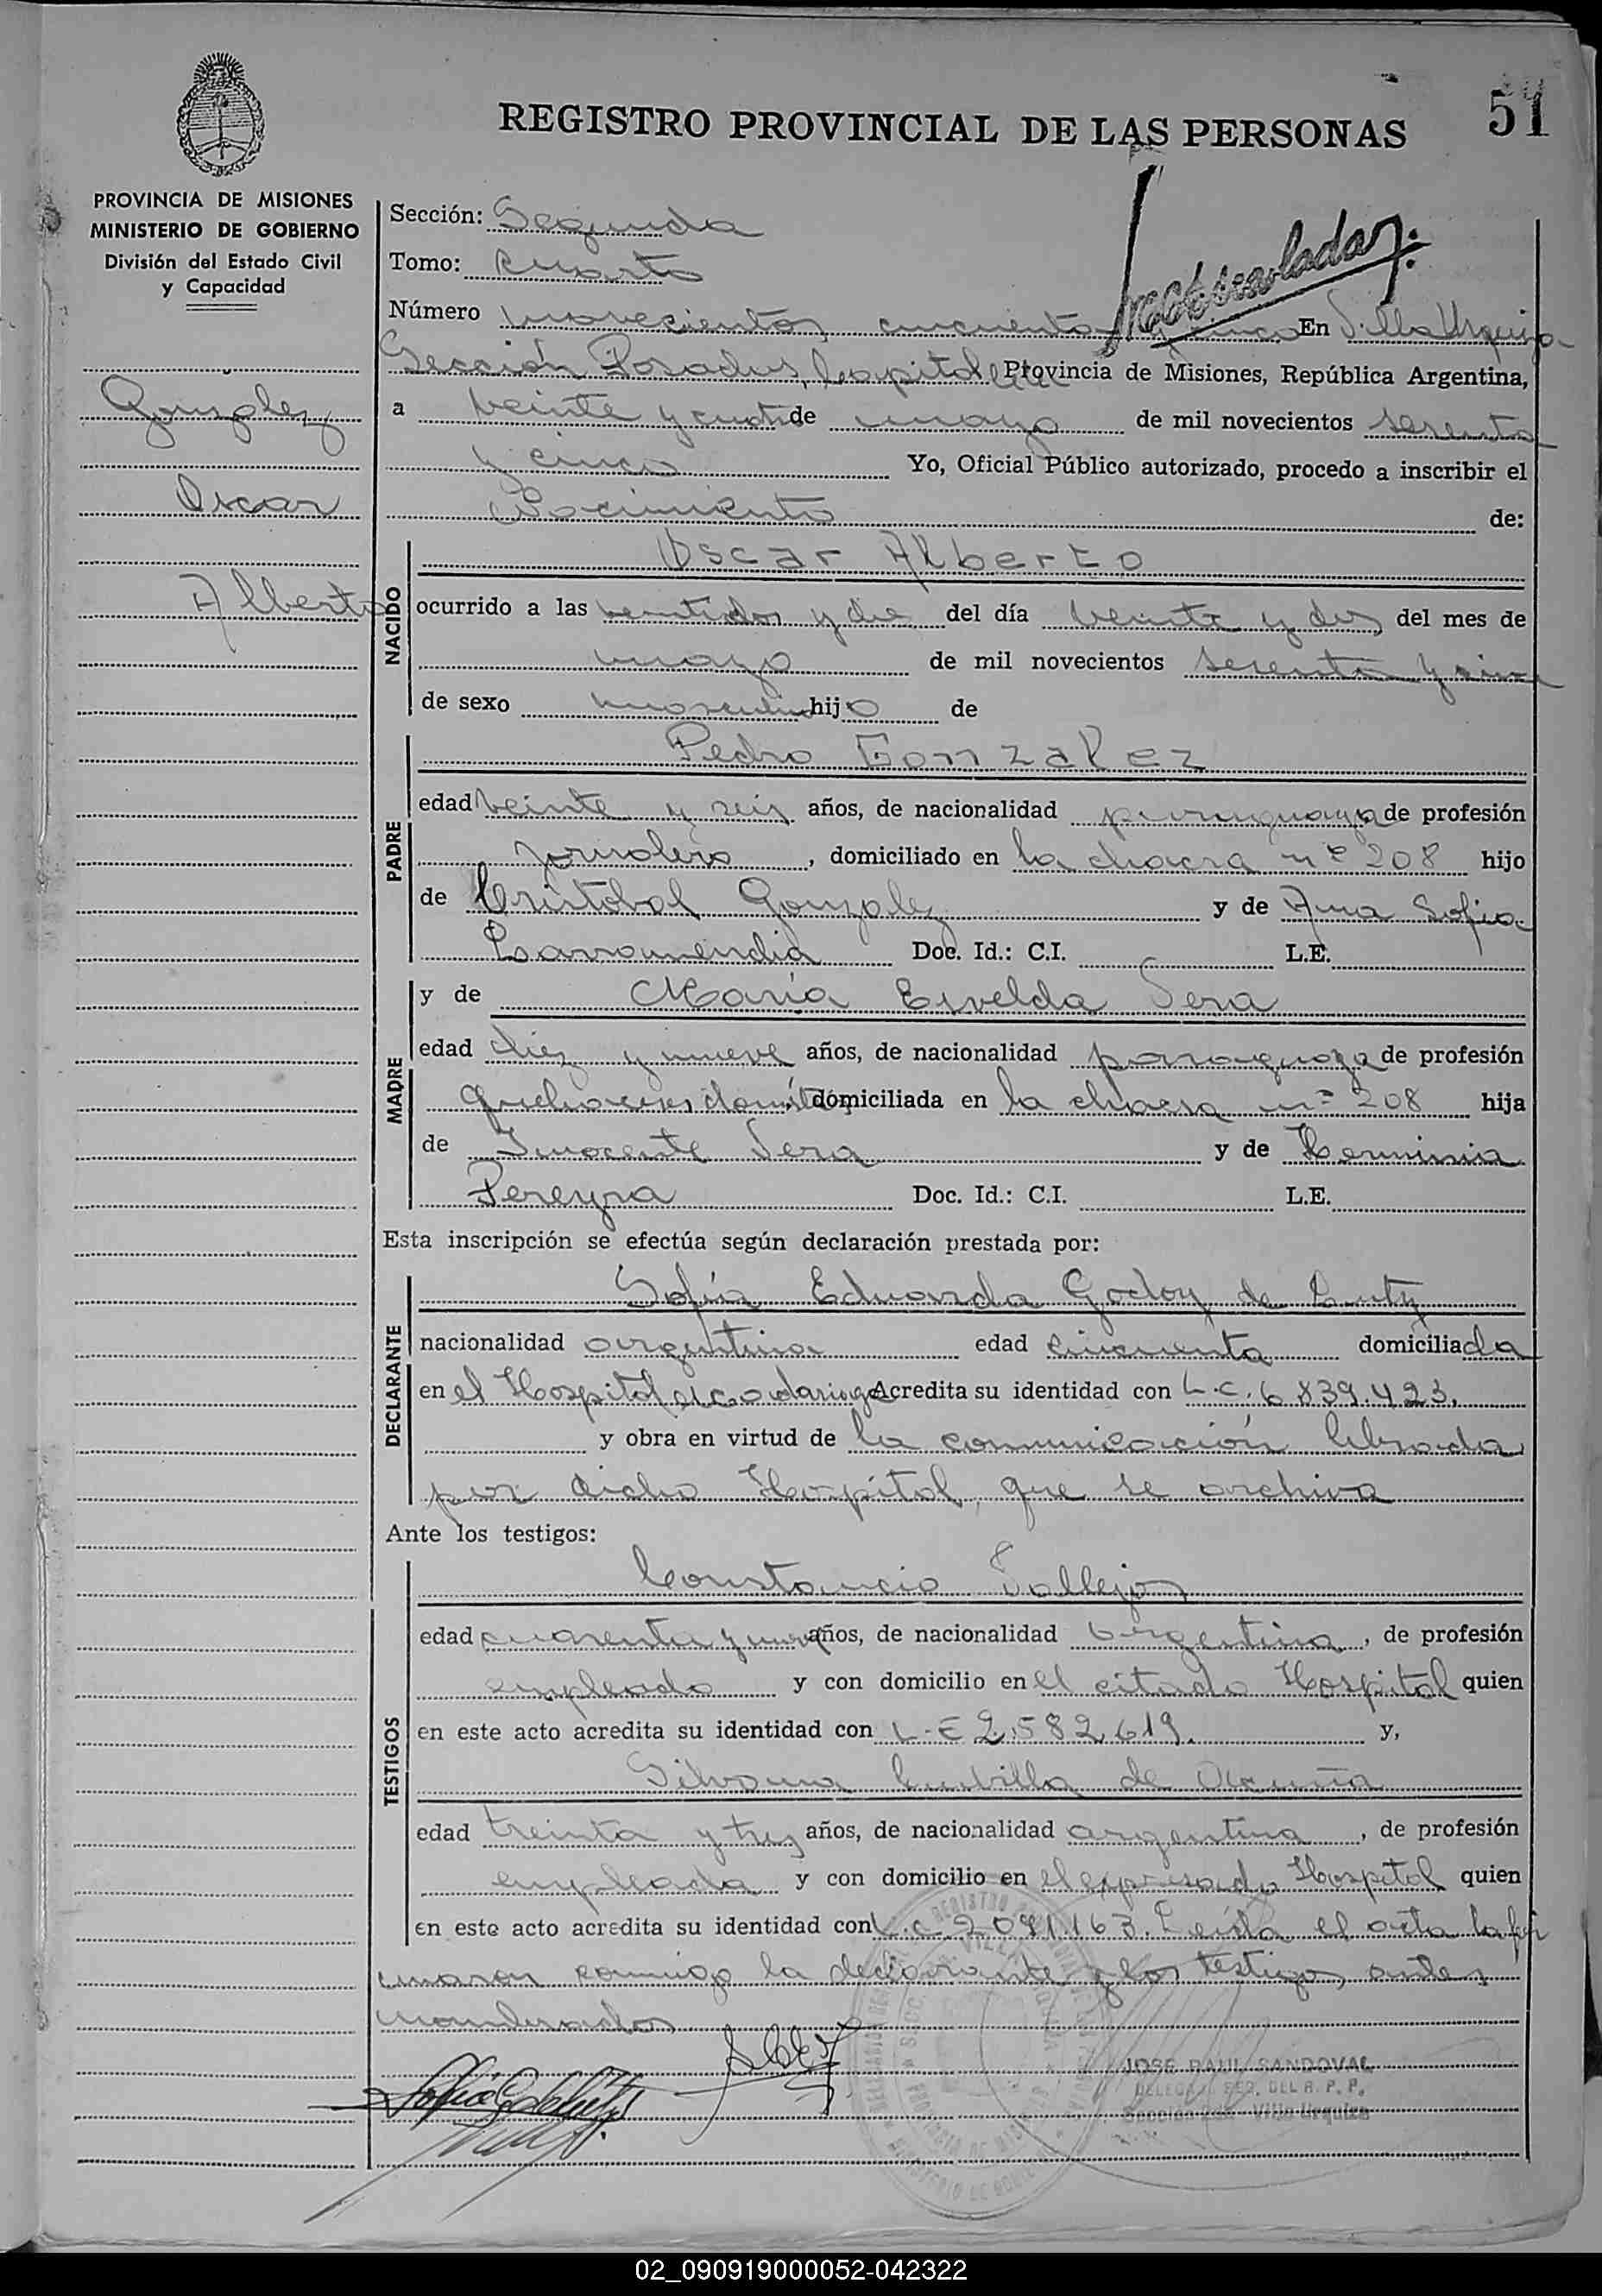 51
REGISTRO PROVINCIAL DE LAS PERSONAS
PROVINCIA DE MISIONES
MINISTERIO DE GOBIERNO
División del Estado Civil
y Capacidad
Gonzalez
Oscar
Alberto
Sección: Segunda
Tomo: Cuarto
Número novecientos cincuenta y cinco En Villa Urquiza
Sección Posadas, hospital Provincia de Misiones, República Argentina,
a veinte y cuatro de mayo de mil novecientos sesenta
y cinco Yo, Oficial Público autorizado, procedo a inscribir el
Nacimiento de:
NACIDO
Oscar Alberto
ocurrido a las veintidos y diez del día veinte y dos del mes de
mayo de mil novecientos sesenta y cinco
de sexo masculino hijo de
PADRE
Pedro Gonzalez
edad veinte y seis años, de nacionalidad paraguaya de profesión
jornalero, domiciliado en la chacra nº 208 hijo
de Cristobal Gonzalez y de Ana Sofia
Larramendia Doc. Id.: C.I. L.E.
MADRE
y de María Eivelda Vera
edad diez y nueve años, de nacionalidad paraguaya de profesión
quehaceres domést. domiciliada en la chacra nº 208 hija
de Inocente Vera y de Herminia
Pereyra Doc. Id.: C.I. L.E.
Esta inscripción se efectúa según declaración prestada por:
DECLARANTE
Sofía Eduarda Godoy de
nacionalidad argentina edad cincuenta domiciliada
en el Hospital Acredita su identidad con L.C. 6.839.423.
y obra en virtud de la comunicación librada
por dicho Hospital, que se archiva
Ante los testigos:
TESTIGOS
Constancio Vallejos
edad cuarenta y nueve años, de nacionalidad argentina, de profesión
empleado y con domicilio en el citado Hospital quien
en este acto acredita su identidad con L.E 2.582.619. y,
Silvana Cubilla de Acuña
edad treinta y tres años, de nacionalidad argentina, de profesión
empleada y con domicilio en el expresado Hospital quien
en este acto acredita su identidad con L.C. 2.091.163. Leida el acta la fir
maron conmigo la declarante y los testigos antes
nombrados
JOSE RAUL SANDOVAL
DELEGADO SEC. DEL R. P. P.
Sección 2da. Villa Urquiza
02_090919000052-042322